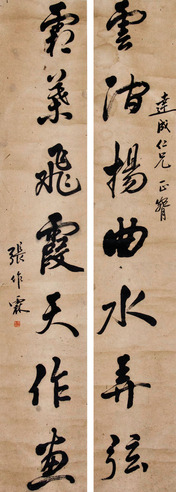 雲揚曲水弄弦
達成仁兄 正
霜葉飛霞天作畫
張作霖